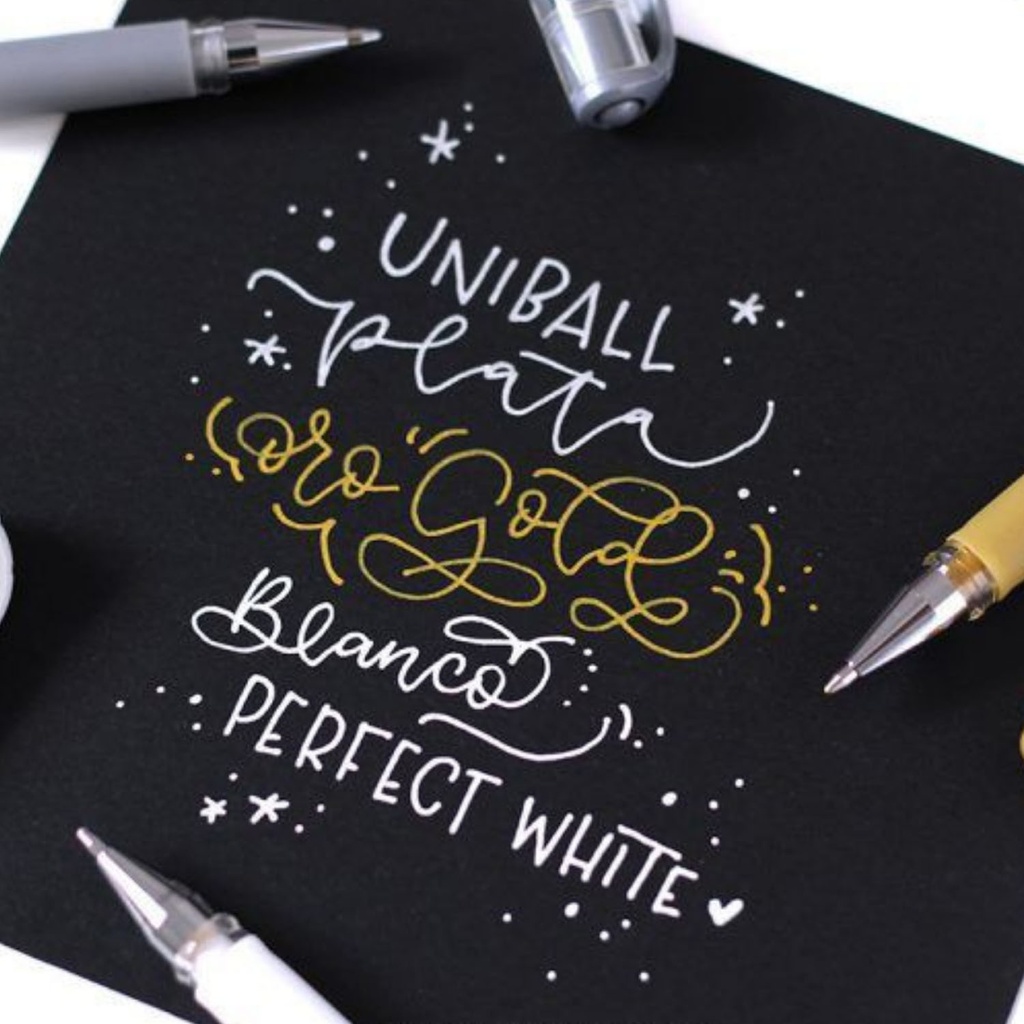 UNIBALL
plata
oro "Gold
Blanco
PERFECT WHITE